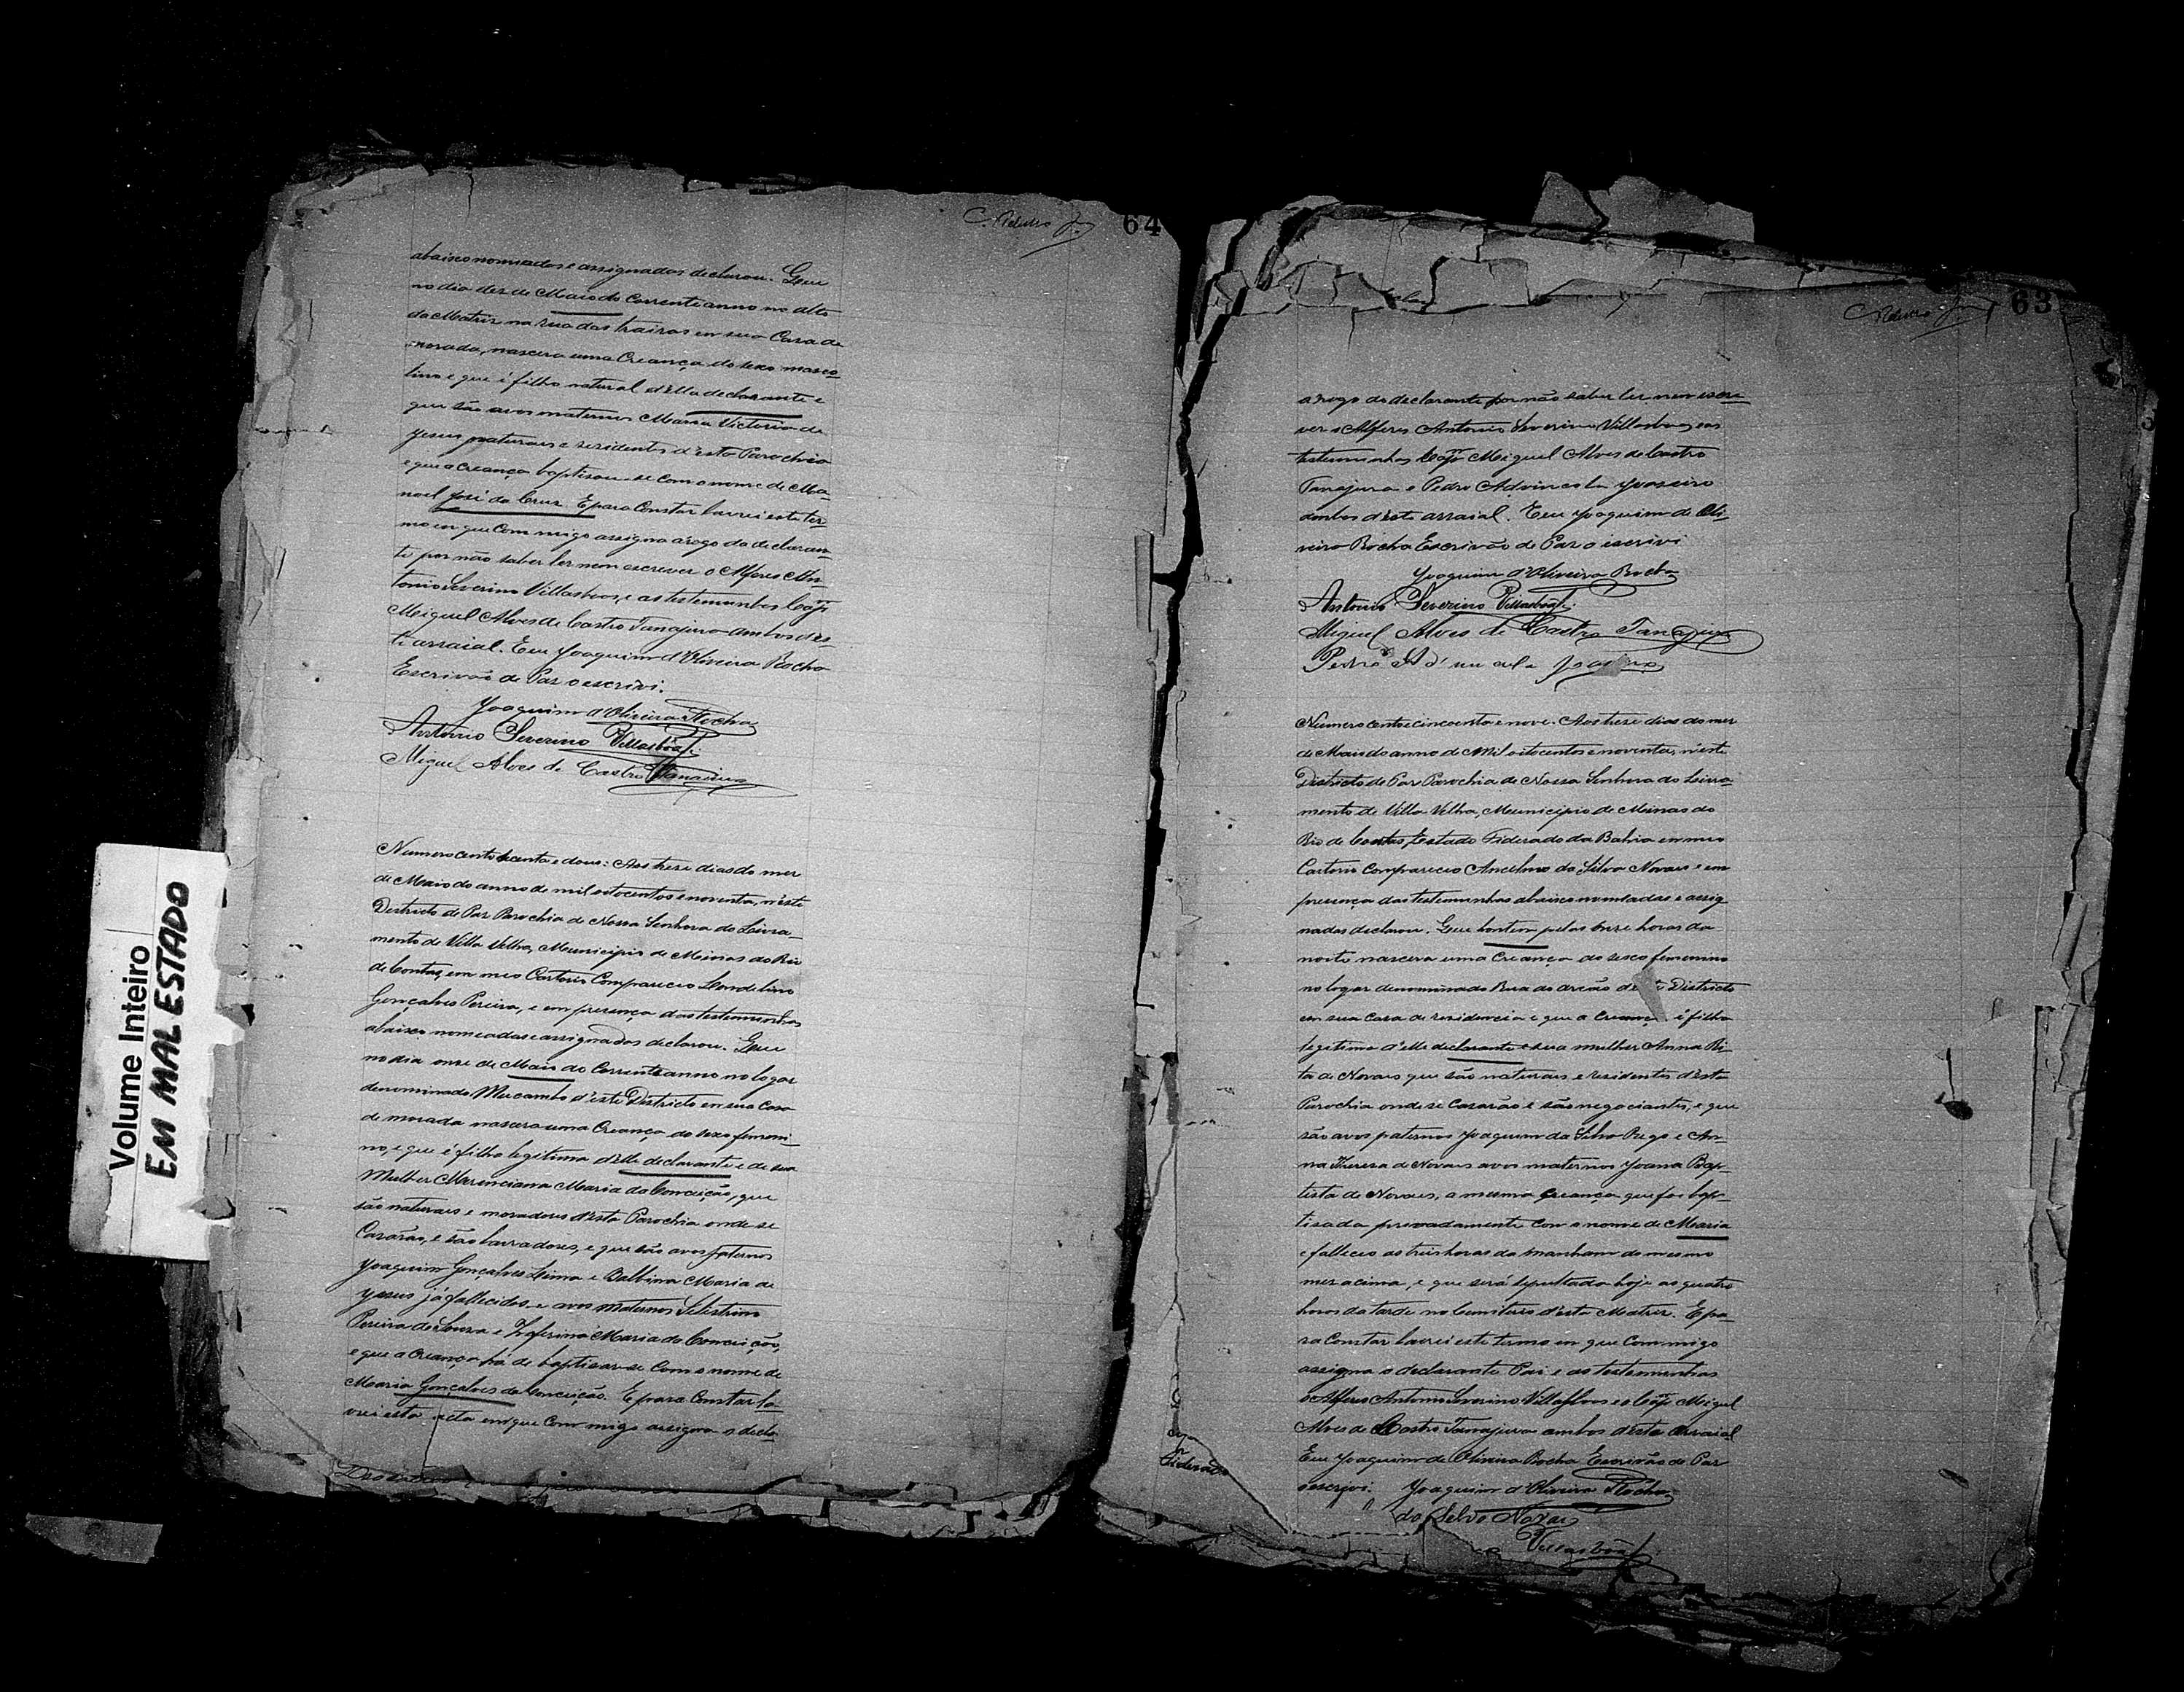 Volume Inteiro
EM MAL ESTADO
64
abaixo nomeadas e assignadas declarou. Que
no dia dez de Maio do Corrente anno no alto
da Matriz na rua das trairas em sua Casa de
morada, nascera uma Creança do sexo mascu-
lino e que é filho natural d'ella declarante e
que são avos maternos Maria Victoria de
Jesus naturaes e residentes d'esta Parochia
e que a Creança baptisou-se com o nome de Ma-
noel José da Cruz. E para Constar lavrei este ter-
mo em que Commigo assigna a rogo da declaran-
te por não saber ler nem escrever o Alferes An-
tonio Severino Villasboas, e as testemunhas Capm
Miguel Alves de Castro Tanajura ambos d'es-
te arraial. Eu Joaquim d'Oliveira Rocha
Escrivão de Paz o escrevi.
Joaquim d'Oliveira Rocha
Antonio Severino Villasbôas
Miguel Alves de Castro Tanajura
Numero cento secenta e dous: Aos treze dias do mez
de Maio do anno de mil oitocentos e noventa, n'este
Districto de Paz Parochia de Nossa Senhora do Livra-
mento de Villa Velha, Municipio de Minas do Rio
de Contas, em meo Cartorio Compareceo Leondelino
Gonçalves Pereira, e em presença das testemunhas
abaixo nomeadas e assignadas declarou. Que
no dia onze de Maio do Corrente anno no logar
denominado Mucambo d'este Districto em sua Casa
de morada nascera uma Creança do sexo femeni-
no, e que é filha legitima d'elle declarante e de sua
Mulher Merenciana Maria da Conceição, que
são naturaes e moradores d'esta Parochia onde se
Casarão, e são lavradores, e que são avos paternos
Joaquim Gonçalves Lima e Balbina Maria de
Jesus já fallecidos e avos maternos Selistrino
Pereira de Souza e Zeferina Maria da Conceição,
e que a Creança há de baptisar-se Com o nome de
Maria Gonçalves da Conceição. E para Constar la-
vrei esta acta em que Commigo assigna o decla-
63
a rogo do declarante por não saber ler nem escre-
ver o Alferes Antonio Severino Villasboas, e as
testemunhas Capm Miguel Alves de Castro
Tanajura e Pedro Advincola Joaseiro
ambos d'este arraial. Eu Joaquim de Oli-
veira Rocha Escrivão de Paz o escrivi
Joaquim d'Oliveira Rocha
Antonio Severino Villasbôas
Miguel Alves de Castro Tanajura
Pedro
Numero cento e cincoenta e nove. Aos treze dias do mez
de Maio do anno de Mil oitocentos e noventa, n'este
Districto de Paz Parochia de Nossa Senhora do Livra-
mento de Villa Velha, Municipio de Minas do
Rio de Contas, Estado Federado da Bahia em meo
Cartorio Compareceo Ancelmo da Silva Novaes e em
presença das testemunhas abaixo nomeadas e assig
nadas declarou. Que hontem pelas onze horas da
noite nascera uma Creança do sexo femenino
no logar denominado Rua do areão Districto
em sua Casa de residencia e que a Creança é filha
legitima d'elle declarante e sua mulher Anna Ri-
ta de Novaes que são naturaes e residentes d'esta
Parochia onde se Casarão e são negociantes, e que
são avos paternos Joaquim da Silva Rego e An-
na Thereza de Novaes avos maternos Joana Bap-
tista de Novaes, a mesma Creança que foi bap-
tisada privadamente Com o nome de Maria
e falleceo as treis horas da manham do mesmo
mez acima, e que será sepultada hoje as quatro
horas da tarde no Cemiterio d'esta Matriz. E pa-
ra Constar lavrei este termo em que Commigo
assigna o declarante Pai e as testemunhas
o Alferes Antonio Severino Villasboas e o Capm Miguel
Alves de Castro Tanajura ambos d'este arraial
Eu Joaquim de Oliveira Rocha Escrivão de Paz
o escrevi. Joaquim d'Oliveira Rocha
da Silva Novaes
Villasbôas